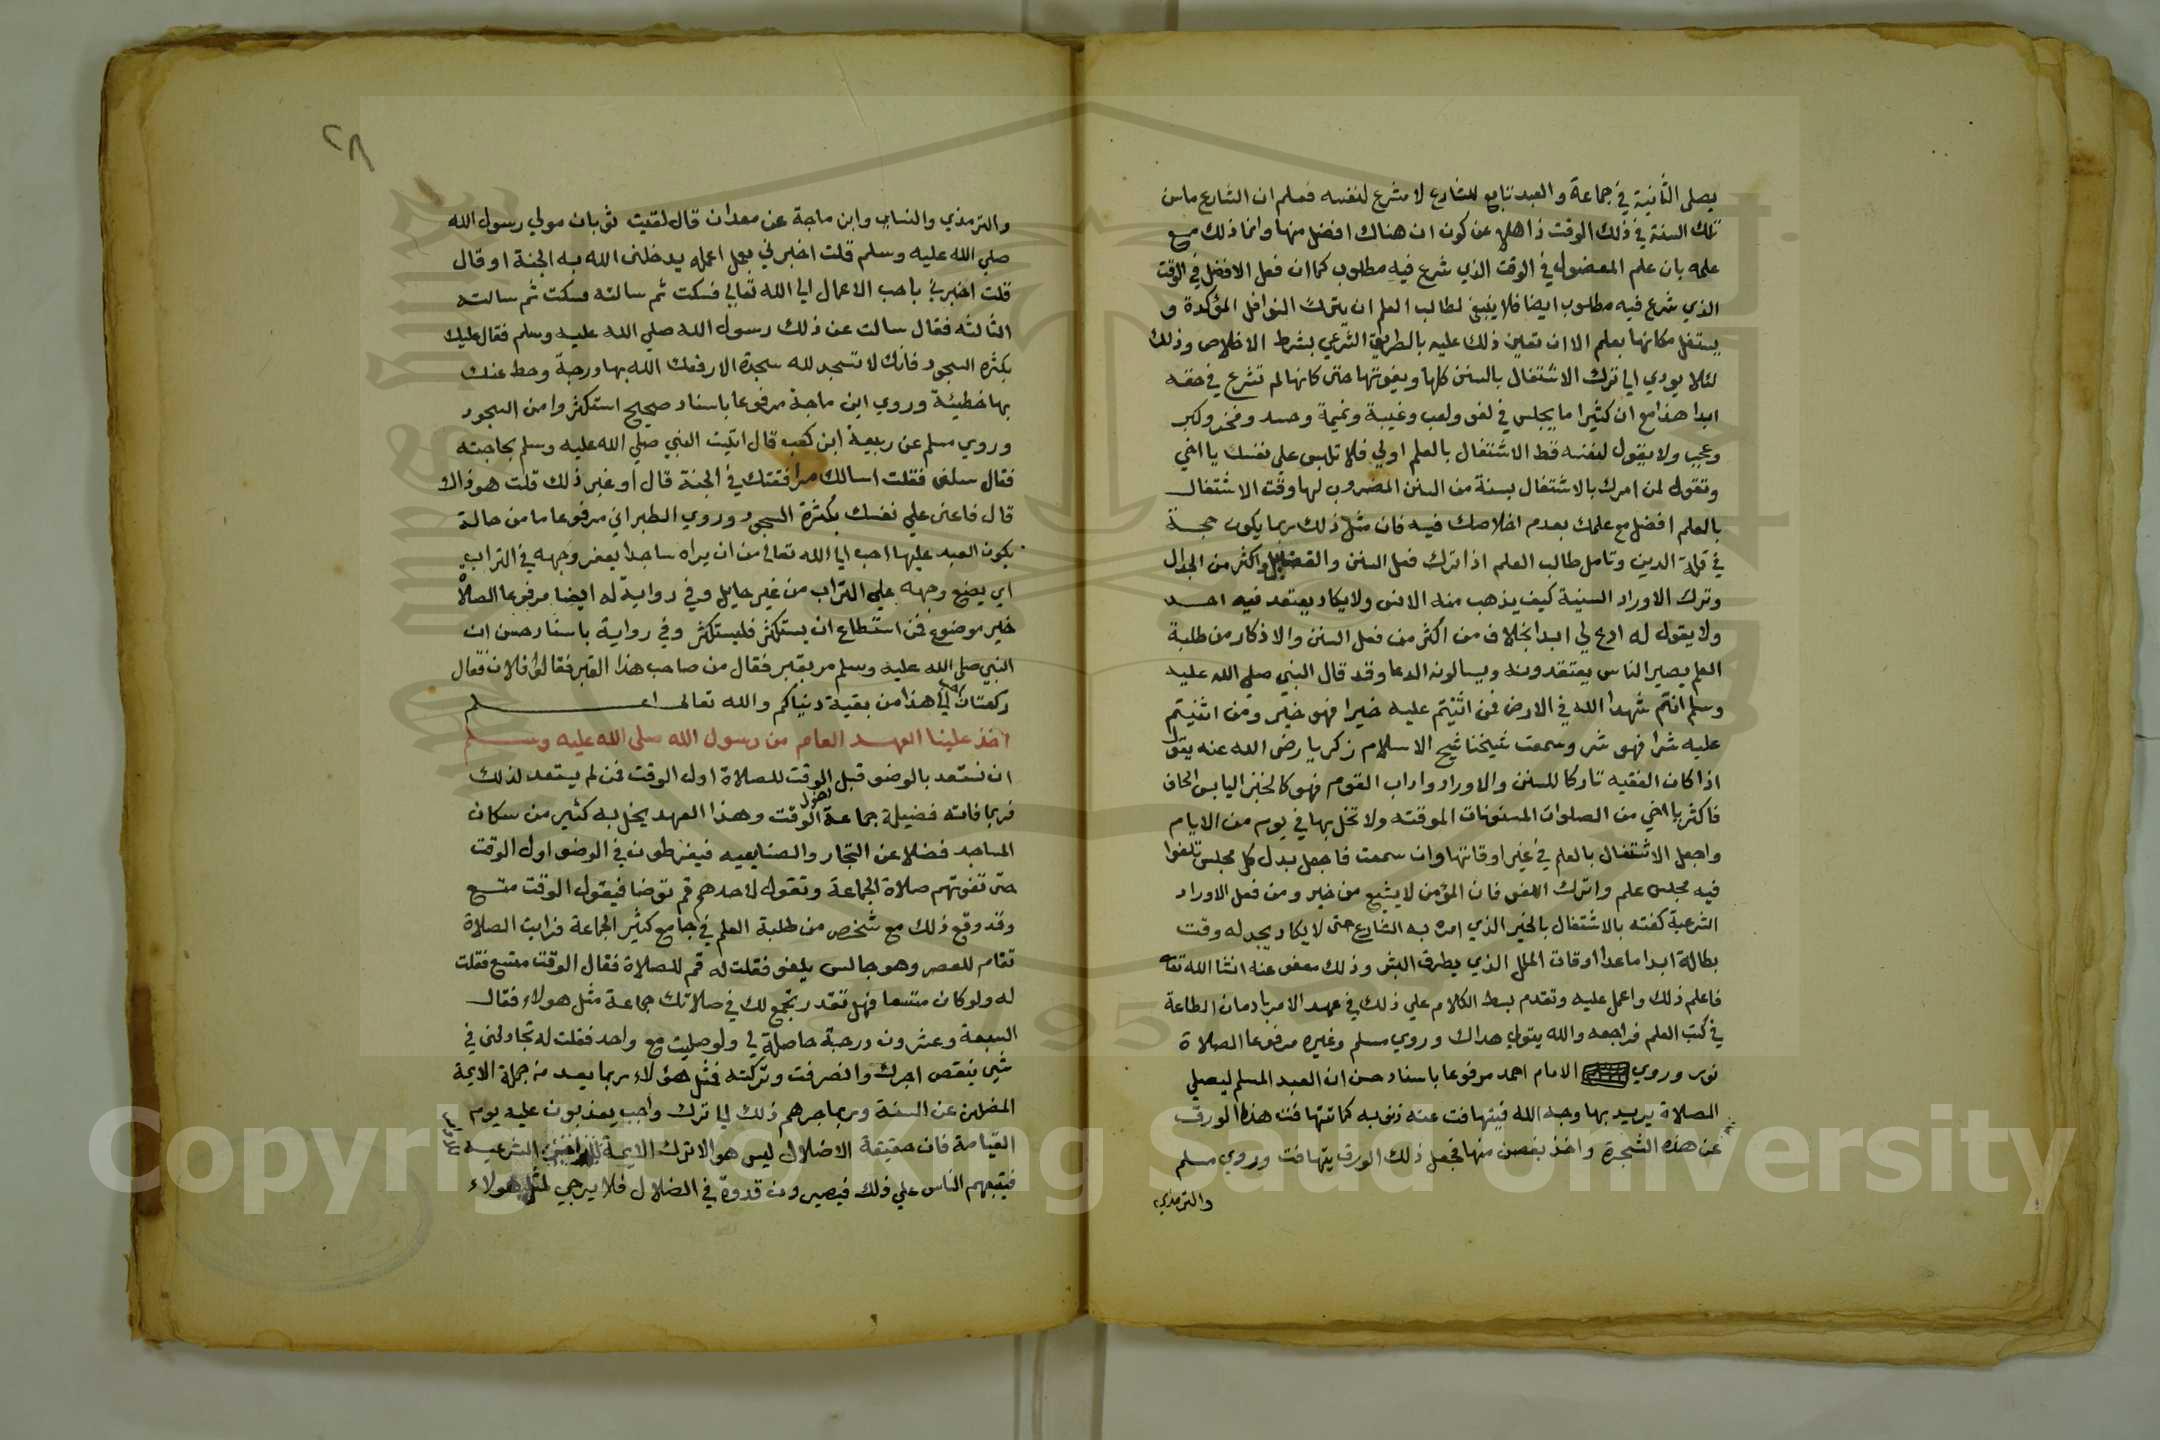 يصلى الثانية في جماعة والعبد تابع للشارع لا مشرع لنفسه فعلم ان الشارع ماسن
تلك السنة في ذلك الوقت ذاهلا عن كون ان هناك افضل منها وانما ذلك مع
علمه بان علم المفضول في الوقت الذي شرع فيه مطلوب كما ان فعل الافضل في الوقت
الذي شرع فيه مطلوب ايضا فلا ينبغي لطالب العلم ان يترك النوافل المؤكدة و
يشتغل مكانها بعلم الا ان تعين ذلك عليه بالطريق الشرعي بشرط الاخلاص وذلك
لئلا يودي الي ترك الاشتغال بالسنن كلها ويفوتها حتى كانها لم تشرع في حقه
ابدا هذا مع ان كثيرا ما يجلس في لغو ولعب وغيبة ونميمة وحسد وفخر وكبر
وعجب ولا يقول لنفسه قط الاشتغال بالعلم اولي فلا تلبس على نفسك يا اخي
وتقول لمن امرك بالاشتغال بسنة من السنن المضروب لها وقت الاشتغال
بالعلم افضل مع علمك بعدم اخلاصك فيه فان مثل ذلك ربما يكون حجة
في قلة الدين وتامل طالب العلم اذا ترك فعل السنن والفضايل واكثر من الجدال
وترك الاوراد السنية كيف يذهب منه الانس ولا يكاد يعتقد فيه احد
ولا يقول له ادع لي ابدا بخلاف من اكثر من فعل السنن والاذكار من طلبة
العلم يصير الناس يعتقدونه ويسالونه الدعا وقد قال النبي صلى الله عليه
وسلم انتم شهدا الله في الارض فمن اثنيتم عليه خيرا فهو خير ومن اثنيتم
عليه شرا فهو شر وسمعت شيخنا شيخ الاسلام زكريا رضى الله عنه يقول
اذا كان الفقيه تاركا للسنن والاوراد واداب القوم فهو كالخبز اليابس الحاف
فاكثر يا اخي من الصلوات المسنونات الموقته ولا تخل بها في يوم من الايام
واجعل الاشتغال بالعلم في غير اوقاتها وان سمعت فاجعل بدل كل مجلس تلغوا
فيه مجلس علم واترك اللغو فان المؤمن لا يشبع من خير ومن فعل الاوراد
الشرعية كفته بالاشتغال بالخير الذي امره به الشارع حتى لا يكاد يجد له وقت
بطالة ابدا ما عدا اوقات الملل الذي يطرق البشر وذلك معفو عنه انشا الله تعا
فاعلم ذلك واعمل عليه وتقدم بسط الكلام علي ذلك في عهد الامر بادمان الطاعة
في كتب العلم فراجعه والله يتولي هداك وروي مسلم وغيره مرفوعا الصلاة
نور وروي الامام احمد مرفوعا باسناد حسن ان العبد المسلم ليصلي
الصلاة يريد بها وجه الله فيتهافت عنه ذنوبه كما تتهافت هذه الورق
عن هذه الشجرة واخذ بغصن منها فجعل ذلك الورق يتهافت وروي مسلم
والترمذي
٢٨
والترمذي والنساي وابن ماجة عن معدان قال لقيت ثوبان مولي رسول الله
صلي الله عليه وسلم قلت اخبرني بعمل اعمله يدخلنى الله به الجنة او قال
قلت اخبرني باحب الاعمال الي الله تعالي فسكت ثم سالته فسكت ثم سالته
الثالثه فقال سالت عن ذلك رسول الله صلي الله عليه وسلم فقال عليك
بكثرة السجود فانك لا تسجد لله سجدة الا رفعك الله بها درجة وحط عنك
بها خطيئة وروي ابن ماجة مرفوعا باسناد صحيح استكثروا من السجود
وروي مسلم عن ربيعة ابن كعب قال اتيت النبي صلي الله عليه وسلم بحاجته
فقال سلنى فقلت اسالك مرافقتك في الجنة قال او غير ذلك قلت هو ذاك
قال فاعنى علي نفسك بكثرة السجود وروي الطبراني مرفوعا ما من حالة
يكون العبد عليها احب الي الله تعالى من ان يراه ساجدا يعفر وجهه في التراب
اي يضع وجهه علي التراب من غير حايل وفي رواية له ايضا مرفوعا الصلاة
خير موضوع فمن استطاع ان يستكثر فليستكثر وفي رواية باسناد حسن ان
النبي صلى الله عليه وسلم مر بقبر فقال من صاحب هذا القبر فقالوا فلان فقال
ركعتان احب الي هذا من بقية دنياكم والله تعالى اعلم
اخذ علينا العهد العام من رسول الله صلى الله عليه وسلم
ان نستعد بالوضو قبل الوقت للصلاة اول الوقت فمن لم يستعد لذلك
فربما فاته فضيلة جماعة اول الوقت وهذا العهد يخل به كثير من سكان
المساجد فضلا عن التجار والصنايعيه فيفرطون في الوضو اول الوقت
حتى تفوتهم صلاة الجماعة وتقول لاحدهم قم توضا فيقول الوقت متسع
وقد وقع ذلك مع شخص من طلبة العلم في جامع كثير الجماعة فرايت الصلاة
تقام للعصر وهو جالس يلغو فقلت له قم للصلاة فقال الوقت متسع فقلت
له ولو كان متسعا فهل تقدر تجمع لك في صلاتك جماعة مثل هولاء فقال
السبعة وعشرون درجة حاصلة لي ولو صليت مع واحد فقلت له تجادلنى في
شي ينقص اجرك وانصرفت وتركته فمثل هؤلاء ربما يعد من جملة الايمة
المضلين عن السنة وربما جرهم ذلك لي ترك واجب يعذبون عليه يوم
القيامة فان حقيقة الاضلال ليس هو الا ترك الايمة الشرعيه
فيتبعهم الناس علي ذلك فيصيرون قدوة في الضلال فلا يرجي لمثل هولاء
Copyright © King Saud University
1957